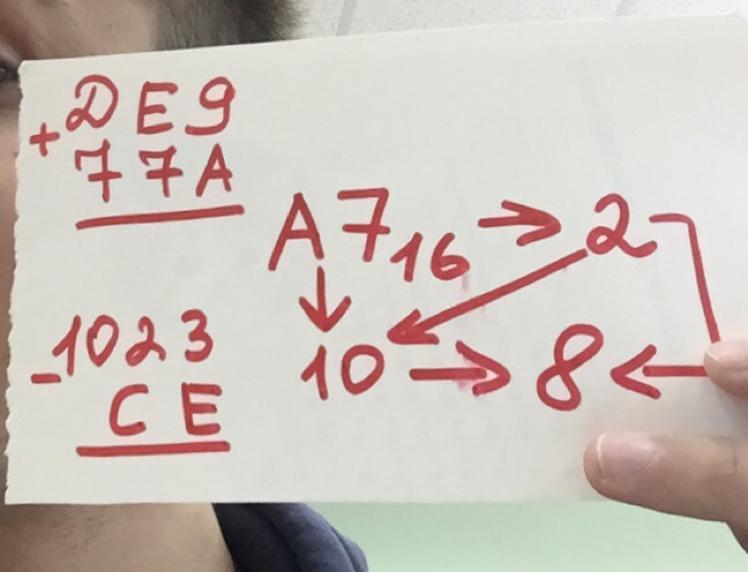 + DE9
77A
A7₁₆ → 2
↓
10 → 8 ←
- 1023
CE